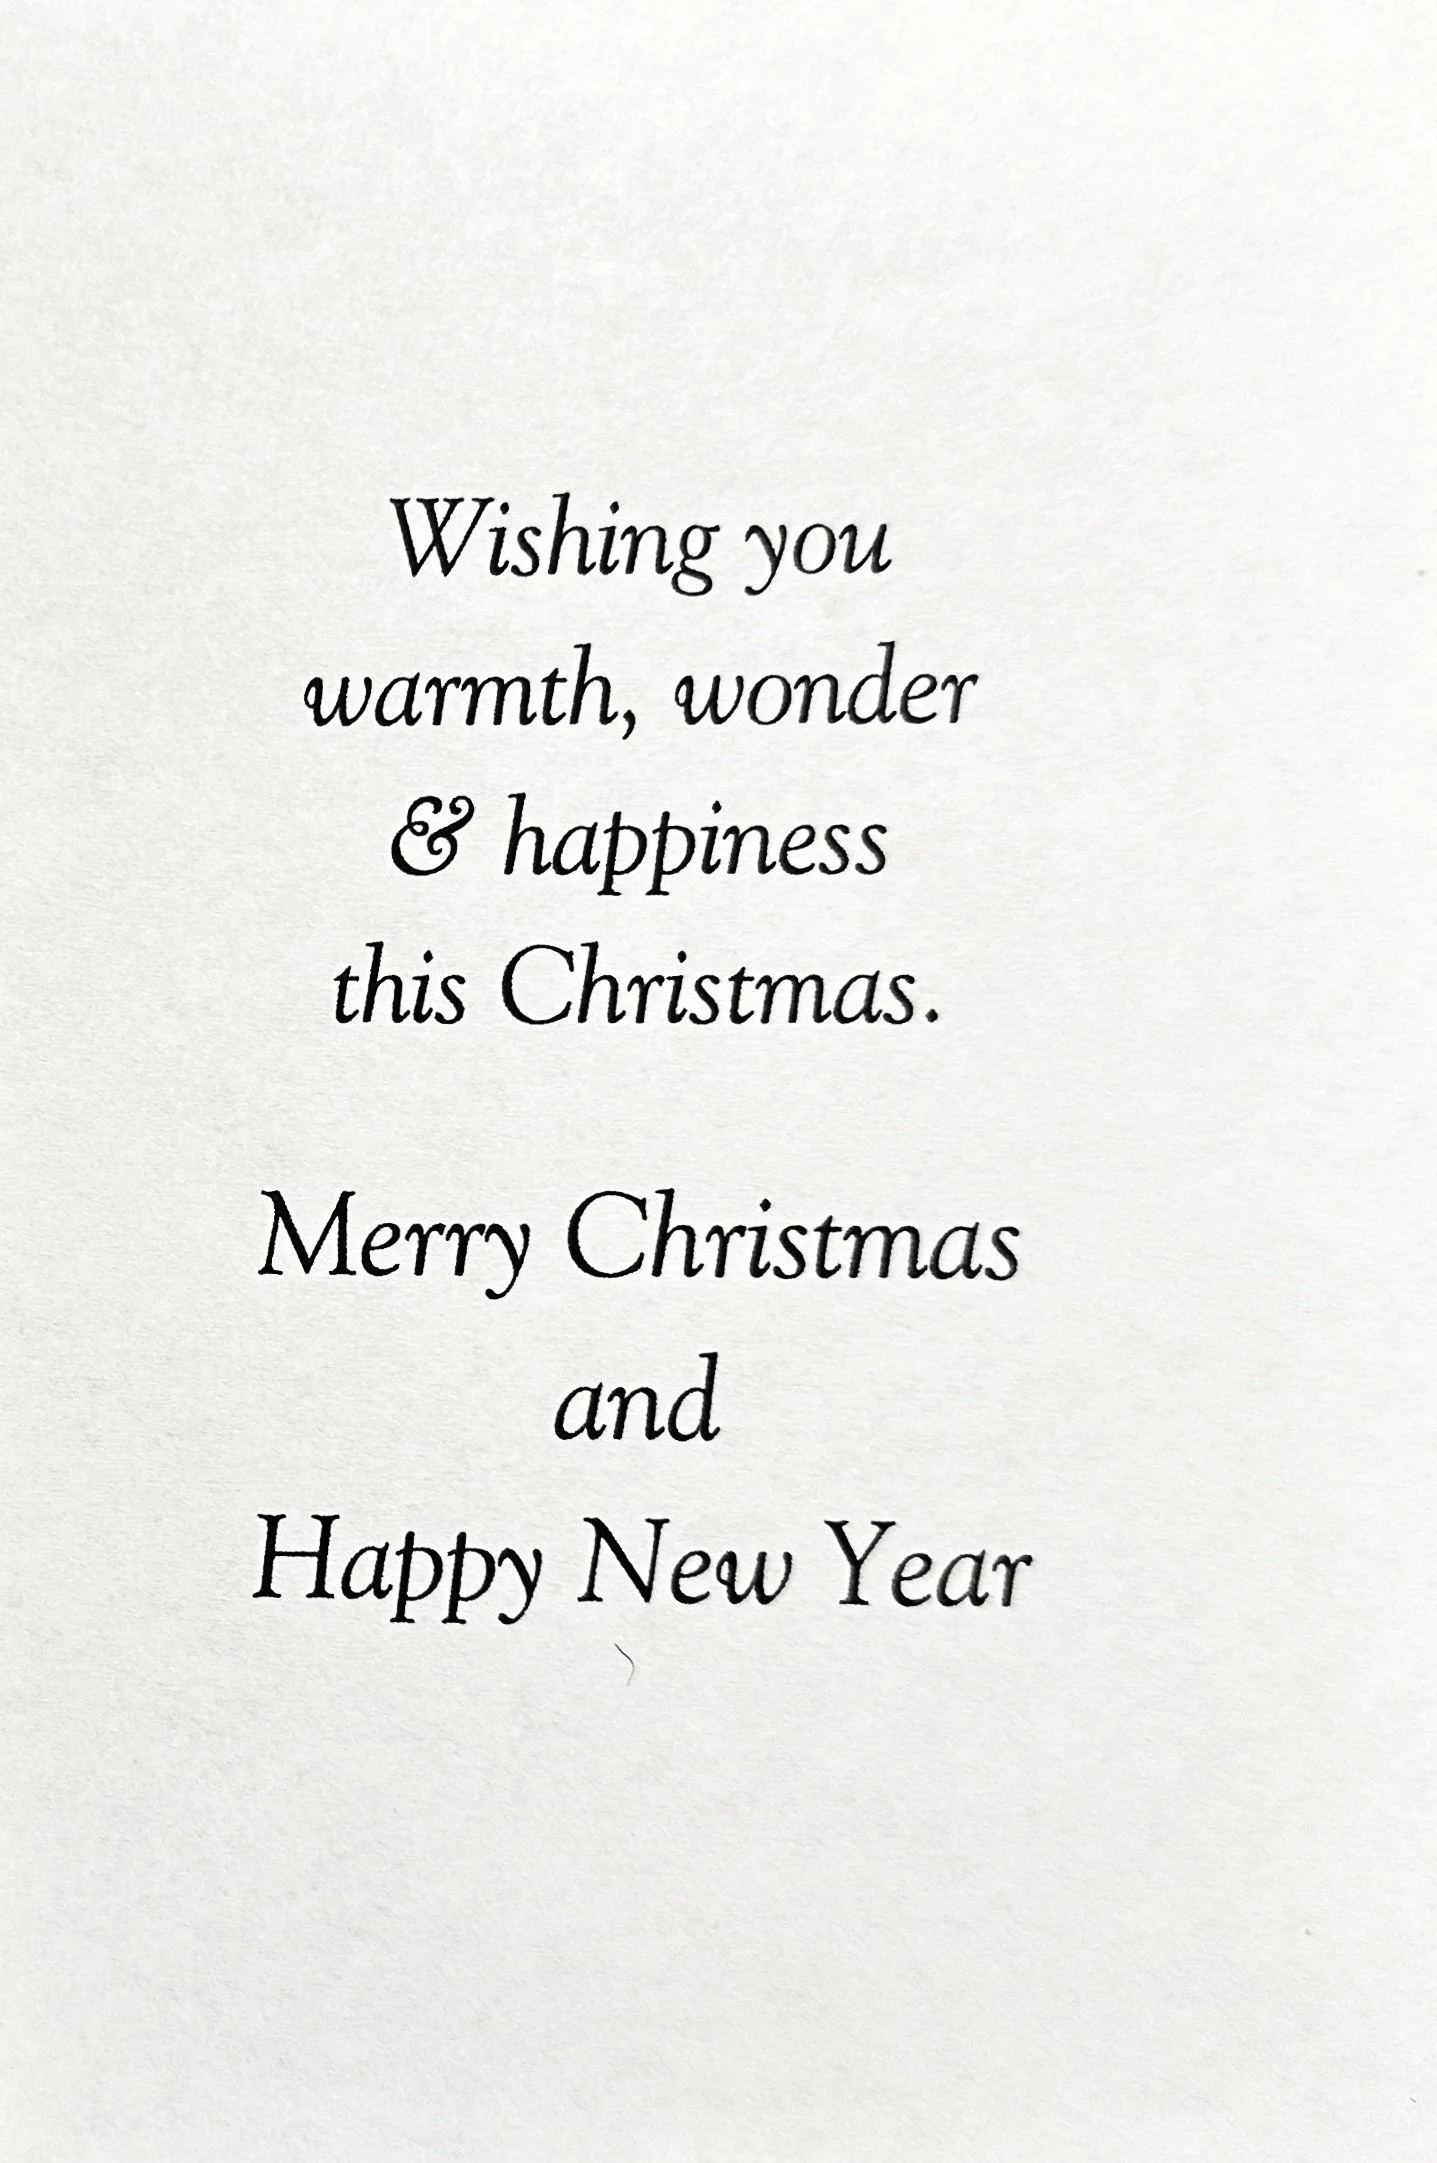 Wishing you
warmth, wonder
& happiness
this Christmas.
Merry Christmas
and
Happy New Year